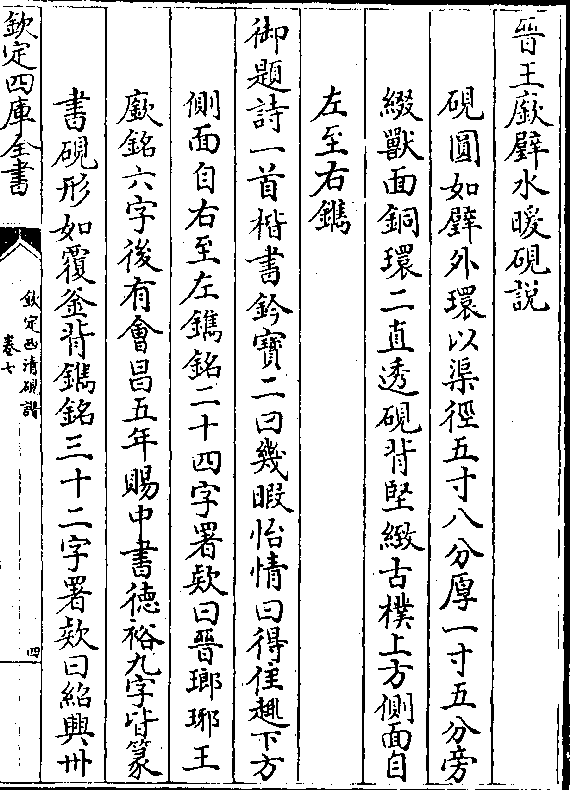 晉王廞璧水暖硯說
硯圓如璧外環以渠徑五寸八分厚一寸五分旁
綴獸面銅環二直透硯背堅緻古樸上方側面自
左至右鐫
御題詩一首楷書鈐寶二曰幾暇怡情曰得佳趣下方
側面自右至左鐫銘二十四字署欵曰晉瑯琊王
廞銘六字後有會昌五年賜中書德裕九字皆篆
書硯形如覆釜背鐫銘三十二字署欵曰紹興卅
欽定四庫全書
欽定西清硯譜
卷七
四